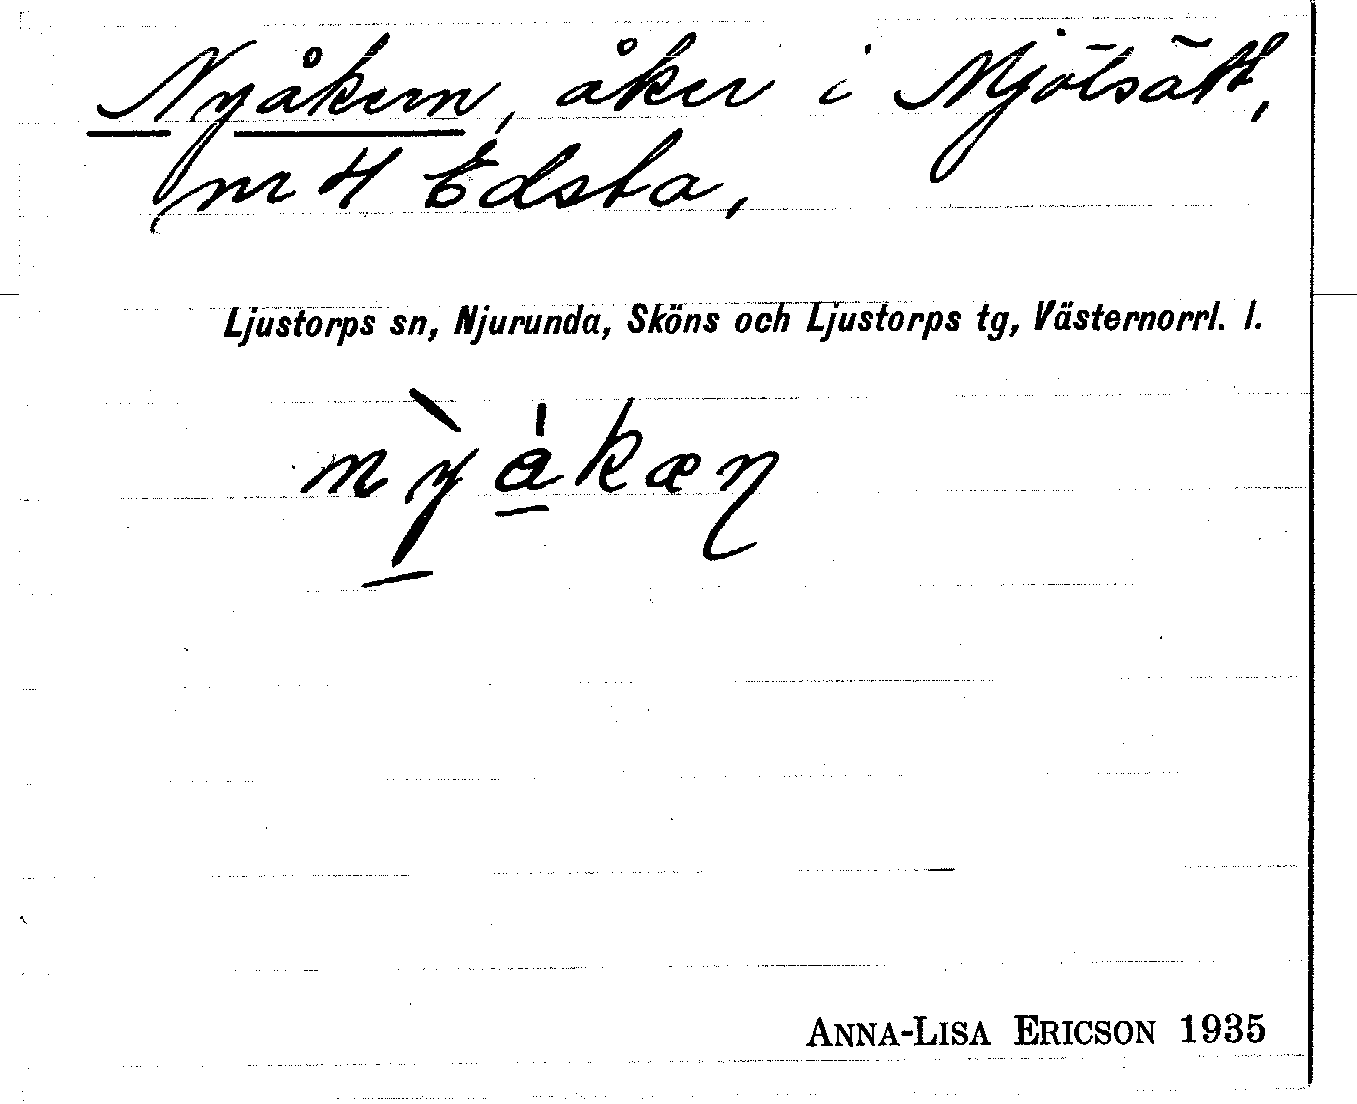 Nyåkern, åker i Mjötsätt,
nr 4 Edsta,
Ljustorps sn, Njurunda, Sköns och Ljustorps tg, Västernorrl. l.
ANNA-LISA ERICSON 1935